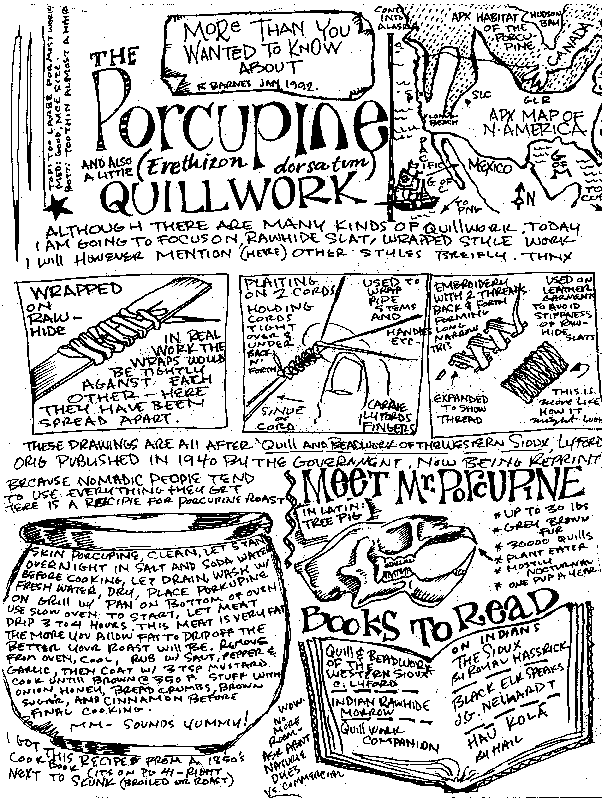 MORE THAN YOU
WANTED TO KNOW
ABOUT
R BARNES JAN 1992.
THE
PORCUPINE
AND ALSO
A LITTLE
(Erethizon dorsatum)
QUILLWORK
APX HABITAT
OF THE
PORCU
PINE
HUDSON
BAY
CANADA
SLC
GLR
APX MAP OF
N. AMERICA
MEXICO
G OF
N
TO
ALTHOUGH THERE ARE MANY KINDS OF QUILLWORK. TODAY
I AM GOING TO FOCUS ON, RAWHIDE SLAT, WRAPPED STYLE WORK
I WILL HOWEVER MENTION (HERE) OTHER STYLES BRIEFLY. THNX
WRAPPED
ON
RAW-
HIDE
IN REAL
WORK THE
WRAPS WOULD
BE TIGHTLY
AGAINST EACH
OTHER - HERE
THEY HAVE BEEN
SPREAD APART.
PLAITING
ON 2 CORDS
HOLDING
CORDS
TIGHT
OVER &
UNDER
BACK N
FORTH
SINUE OR
CORD
USED TO
WRAP
PIPE
STEMS
AND
HANDLES
ETC.
CARRIE
LYFORDS
FINGERS
EMBROIDERY
WITH 2 THREADS
BACK & FORTH
FORMING
LONG
NARROW
EXPANDED
TO SHOW
THREAD
USED ON
LEATHER
GARMENTS
TO AVOID
STIFFNESS
OF RAW-
HIDE
SLATS
THIS IS
MORE LIKE
HOW IT
MIGHT LOOK
THESE DRAWINGS ARE ALL AFTER "QUILL AND BEADWORK OF THE WESTERN SIOUX LYFORD
ORIG PUBLISHED IN 1940 BY THE GOVERNMENT, NOW BEING REPRINT
BECAUSE NOMADIC PEOPLE TEND
TO USE EVERYTHING THEY GET
HERE IS A RECIPE FOR PORCUPINE ROAST
SKIN PORCUPINE, CLEAN, LET STAND
OVERNIGHT IN SALT AND SODA WATER
BEFORE COOKING, LET DRAIN, WASH W/
FRESH WATER, DRY, PLACE PORKUPINE
ON GRILL W/ PAN ON BOTTOM OF OVEN
USE SLOW OVEN TO START, LET MEAT
DRIP 3 TO 4 HOURS, THIS MEAT IS VERY FAT
THE MORE YOU ALLOW FAT TO DRIP OFF THE
BETTER YOUR ROAST WILL BE. REMOVE
FROM OVEN, COOL, RUB W/ SALT, PEPPER &
GARLIC, THEN COAT W/ 3 TSP MUSTARD.
COOK UNTIL BROWN @ 350 F. STUFF WITH
ONION, HONEY, BREAD CRUMBS, BROWN
SUGAR, AND CINNAMON BEFORE
FINAL COOKING.
MM- SOUNDS YUMMY!
I GOT THIS RECIPE FROM A 1850'S
COOK BOOK (ITS ON PG 41- RIGHT
NEXT TO SKUNK (BROILED OR ROAST)
MEET MR. PORCUPINE
IN LATIN:
TREE PIG
* UP TO 30 LBS
* GREY BROWN
FUR
* 30000 QUILLS
* PLANT EATER
* MOSTLY
NOCTURNAL
* ONE PUP A YEAR
BOOKS TO READ
QUILL & BEADWORK
OF THE
WESTERN SIOUX
C. LYFORD
INDIAN RAWHIDE
MORROW
QUILLWORK
COMPANION
ON INDIANS
THE SIOUX
BY ROYAL HASSRICK
BLACK ELK SPEAKS
J.G. NEIHARDT
HAU KOLA
BY HAIL
NO
MORE
ROOM-
ASK ABOUT
NATURAL
DYES
VS. COMMERCIAL